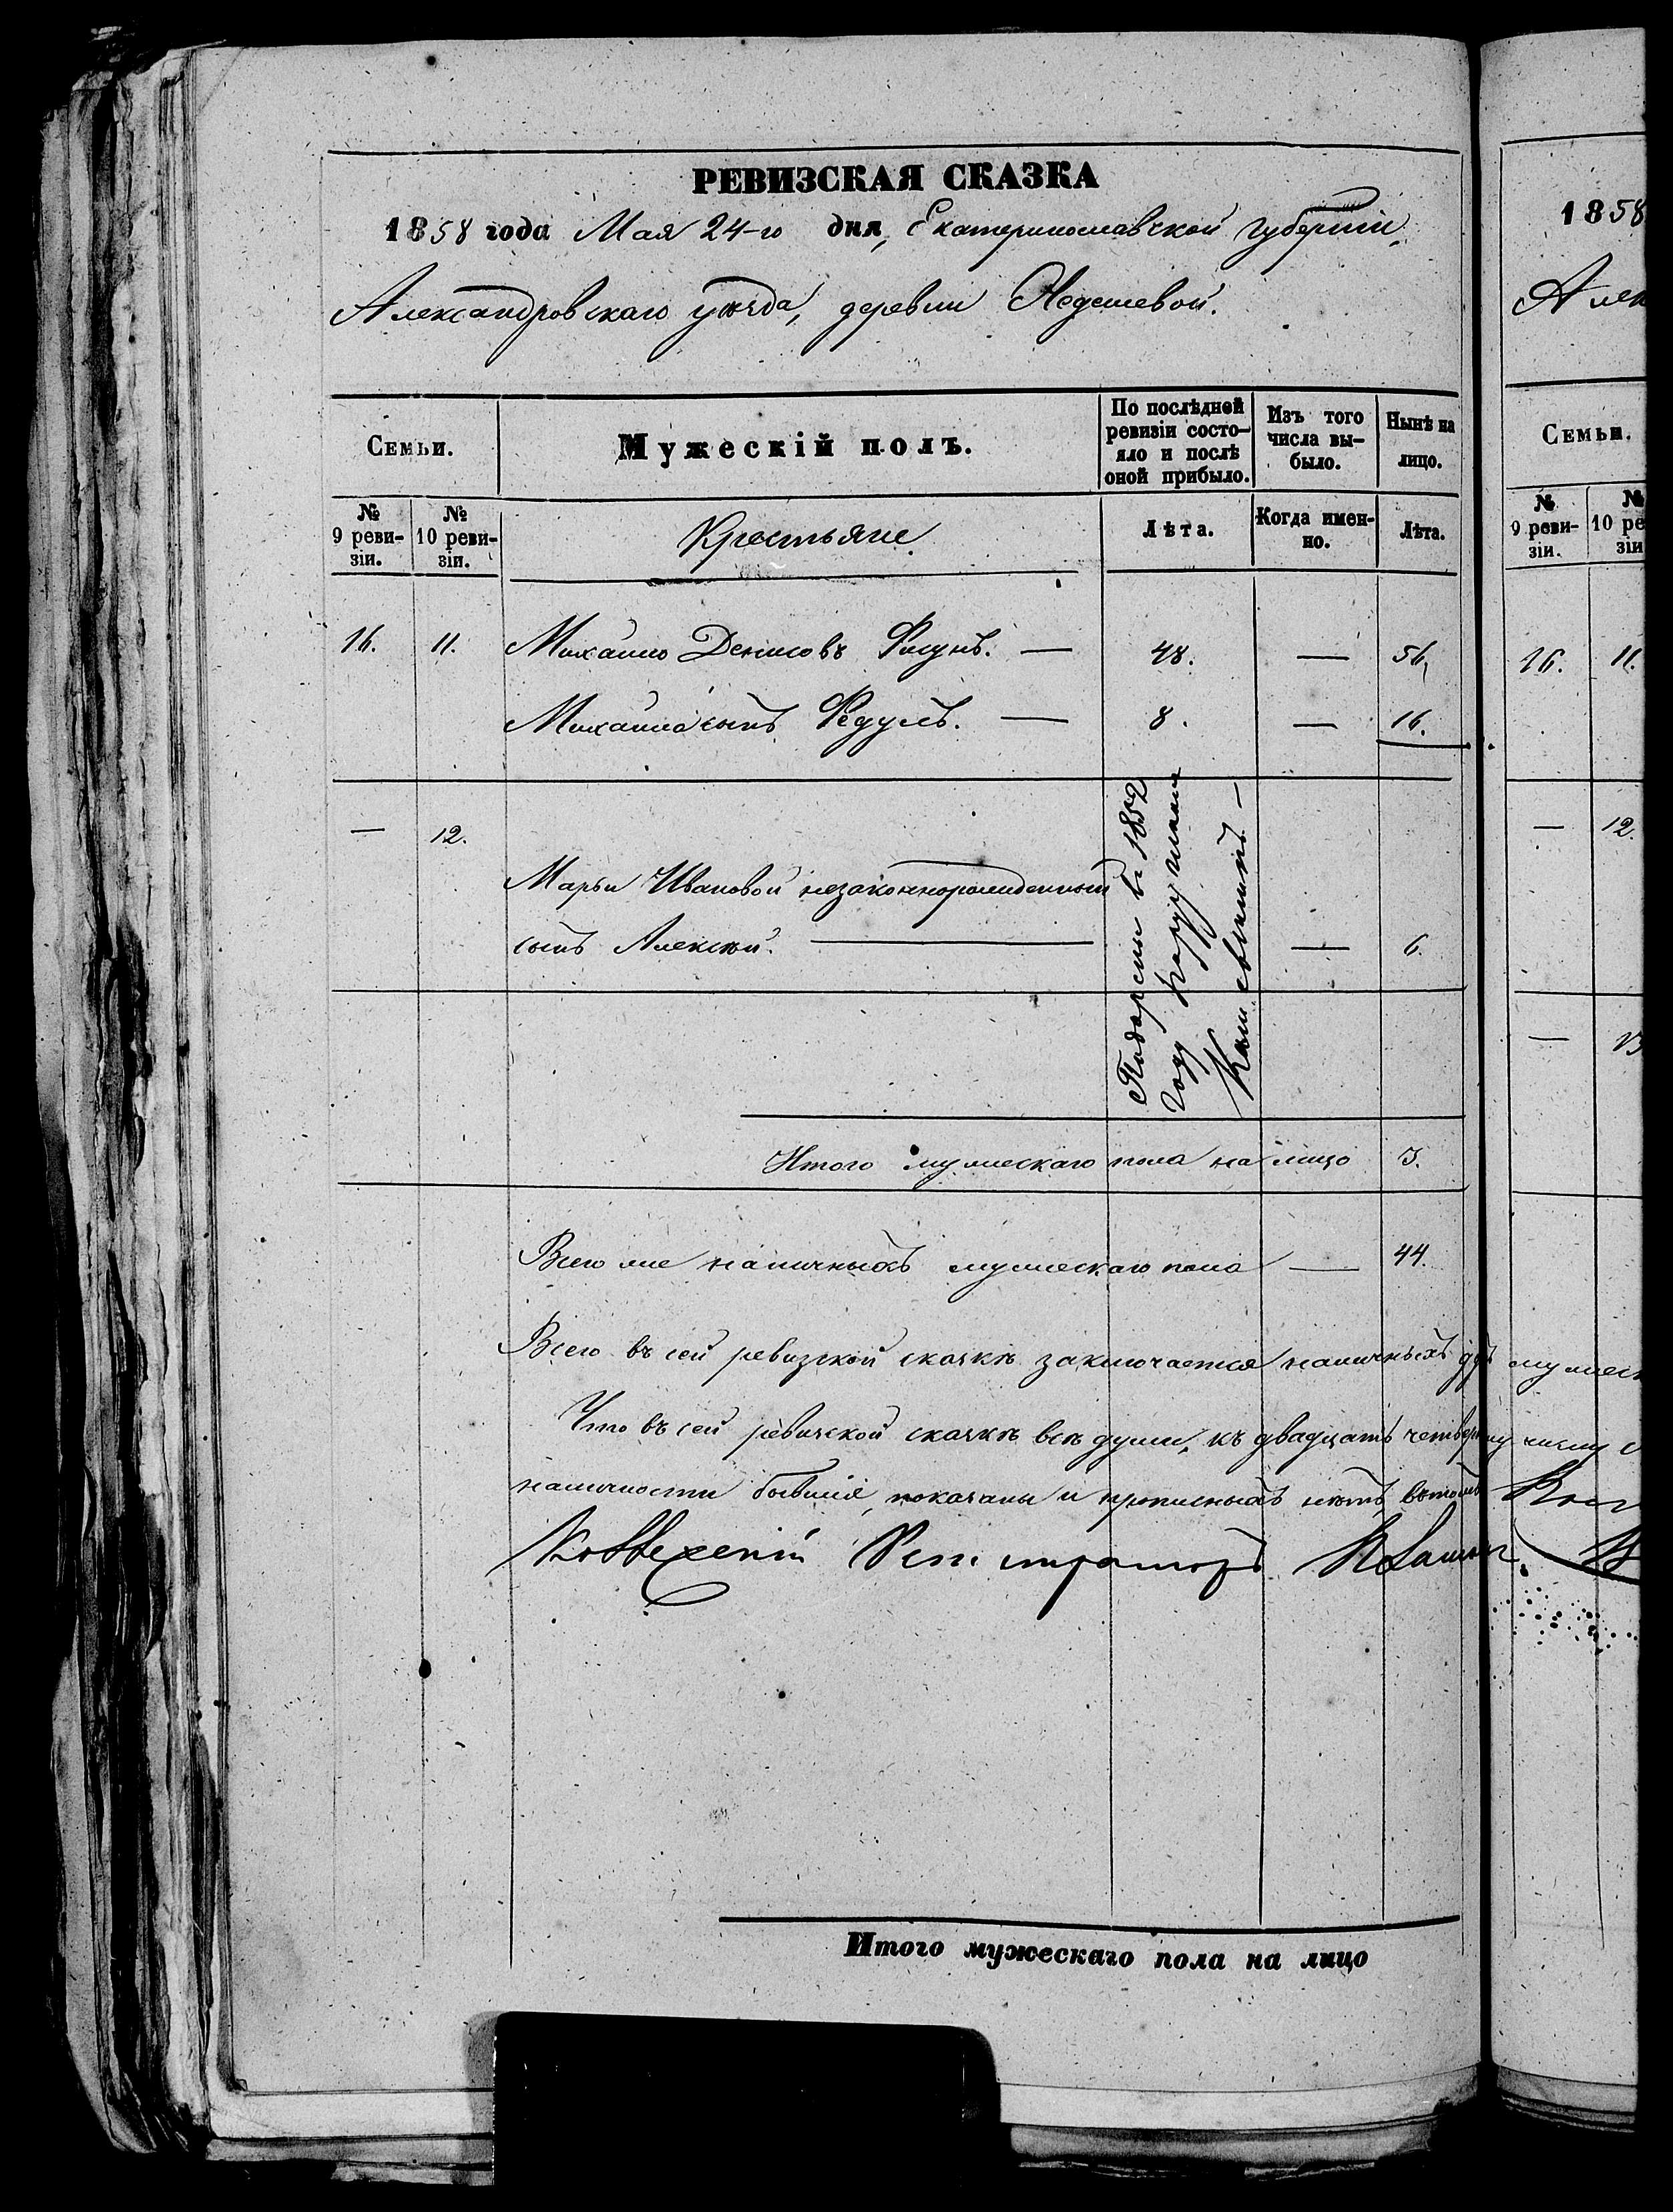 РЕВИЗСКАЯ СКАЗКА
1858 года Мая 24-го дня, Екатеринославской губернiи,
Александровскаго уѣзда, деревни
Семьи.
Мужескiй полъ.
По послѣдней ревизiи состо-
яло и послѣ
оной прибыло.
Изъ того
числа вы-
было.
Нынѣ на
лицо.
№
9 реви-
зiи.
№
10 реви-
зiи.
Крестьяне
Лѣта.
Когда имен-
но.
Лѣта.
16. 11. Михайло Денисовъ — 48. — 56.
Михайла сынъ Федулъ. — 8. — 16.
— 12.
Марьи Ивановой незаконнорожденный
сынъ Алексѣй. — — 6.
въ 1852
году
Итого мужескаго пола на лицо 3.
Всего же наличныхъ мужескаго пола — 44.
Всего въ сей ревизской сказкѣ заключается наличныхъ
Что въ сей ревизской сказкѣ всѣ души, къ двадцать
наличности бывшiе, показаны и прописныхъ нѣтъ, въ томъ
Регистраторъ
Итого мужескаго пола на лицо
1858
Алек
Семьи.
№
9 реви-
зiи.
№
10 ре
зiи
16. 11.
— 12.
— 13